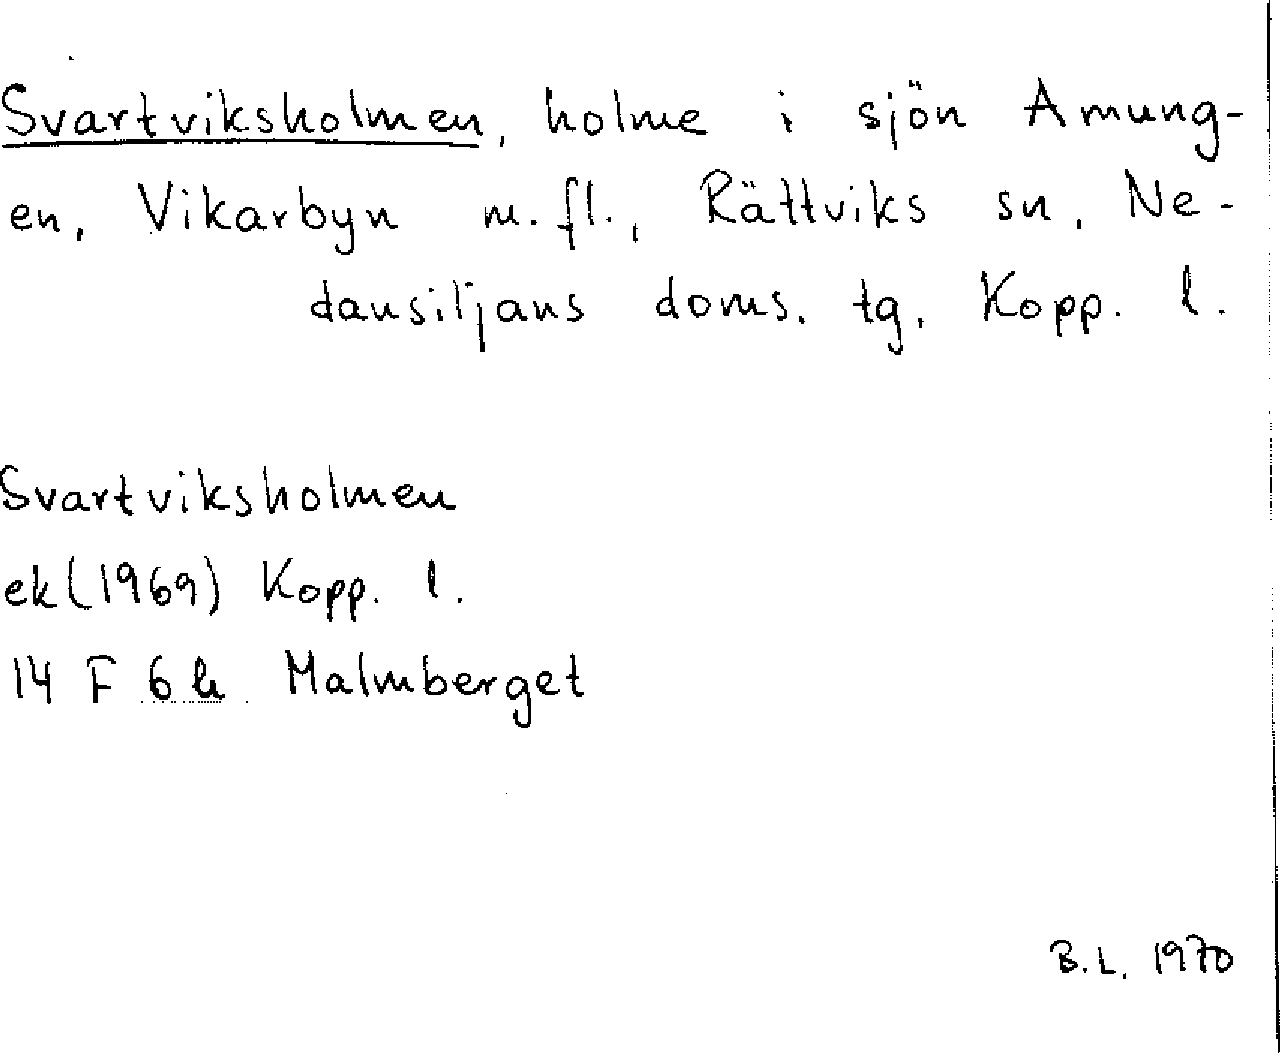 Svartviksholmen, holme i sjön Amung-
en, Vikarbyn m.fl., Rättviks sn, Ne-
dansiljans doms. tg, Kopp. l.
Svartviksholmen
ek (1969) Kopp. l.
14 F 6 h Malmberget
B.L. 1970